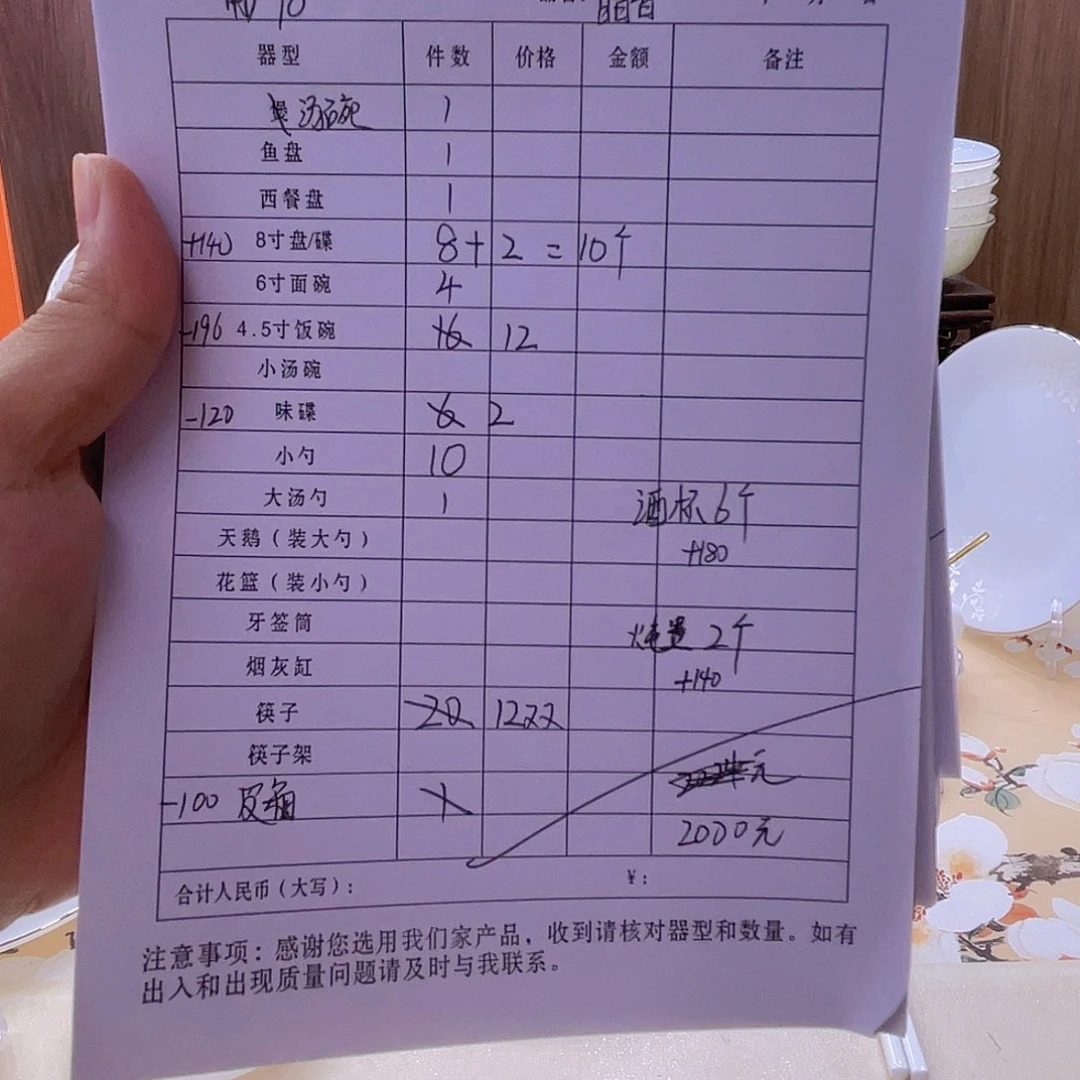 器型 件数 价格 金额 备注
煲 汤碗 1
鱼盘 1
西餐盘 1
+140 8寸盘/碟 8+2=10个
6寸面碗 4
-196 4.5寸饭碗 16 12
小汤碗
-120 味碟 6 2
小勺 10
大汤勺 1 酒杯6个
天鹅（装大勺） +180
花篮（装小勺）
牙签筒 2个
烟灰缸 +140
筷子 20 12双
筷子架 元
-100 皮箱 1
2000元
合计人民币（大写）： ¥：
注意事项：感谢您选用我们家产品，收到请核对器型和数量。如有
出入和出现质量问题请及时与我联系。